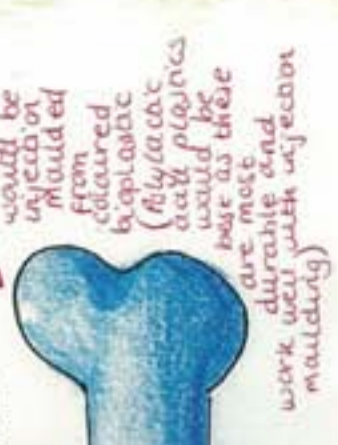 would be
injection
moulded
from
coloured
bioplastic
(Polylactic
acid plastics
would be
best as these
are most
durable and
work well with injection
moulding)